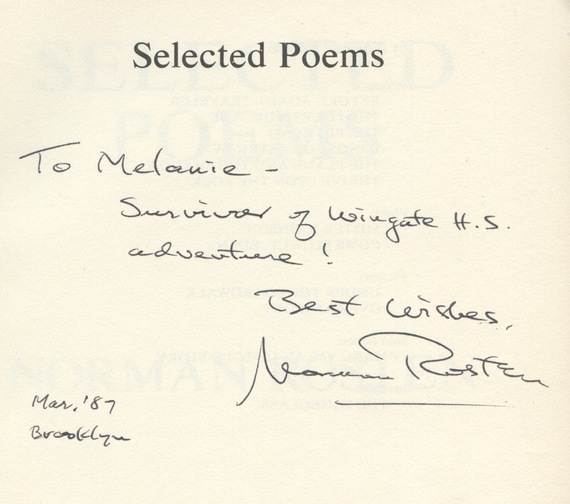 Selected Poems
To Melanie -
Survivor of Wingate H.S.
adventure!
Best Wishes,
Norman Rosten
Mar. '87
Brooklyn